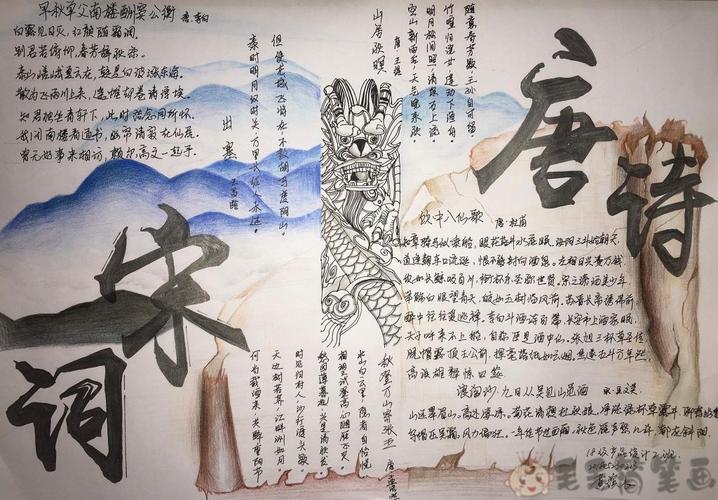 早秋单父南楼酬窦公衡
唐·李白
白露见日灭，红颜随霜凋。
别君若俯仰，春芳辞秋条。
泰山嵯峨夏云在，疑是白波涨东海。
散为飞雨川上来，遥帷却卷清浮埃。
知君独坐青轩下，此时结念同所怀。
我闭南楼看道书，幽帘清寂在仙居。
曾无好事来相访，赖尔高文一起予。
出塞
王昌龄
秦时明月汉时关，万里长征人未还。
但使龙城飞将在，不教胡马度阴山。
山居秋暝
唐·王维
空山新雨后，天气晚来秋。
明月松间照，清泉石上流。
竹喧归浣女，莲动下渔舟。
随意春芳歇，王孙自可留。
唐诗
宋词
饮中八仙歌
唐·杜甫
知章骑马似乘船，眼花落井水底眠。汝阳三斗始朝天，
道逢麹车口流涎，恨不移封向酒泉。左相日兴费万钱，
饮如长鲸吸百川，衔杯乐圣称世贤。宗之潇洒美少年，
举觞白眼望青天，皎如玉树临风前。苏晋长斋绣佛前，
醉中往往爱逃禅。李白斗酒诗百篇，长安市上酒家眠，
天子呼来不上船，自称臣是酒中仙。张旭三杯草圣传，
脱帽露顶王公前，挥毫落纸如云烟。焦遂五斗方卓然，
高谈雄辩惊四筵。
秋登万山寄张五
唐·孟浩然
北山白云里，隐者自怡悦。
相望试登高，心随雁飞灭。
愁因薄暮起，兴是清秋发。
时见归村人，沙行渡头歇。
天边树若荠，江畔洲如月。
何当载酒来，共醉重阳节。
浪淘沙·九日从吴见山觅酒
宋·吴文英
山远翠眉长。高处凄凉。菊花清瘦杜秋娘。净洗绿杯牵露井，聊荐幽香。
乌帽压吴霜。风力偏狂。一年佳节过西厢。秋色雁声愁几许，都在斜阳。
毛毛简笔画